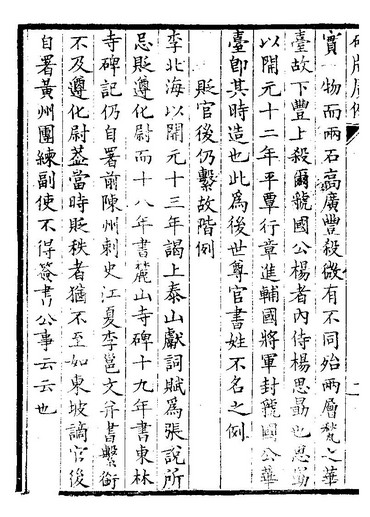 碑版廣例
二
實一物而兩石高廣豐殺微有不同殆兩層甃之華
臺故下豐上殺爾虢國公楊者內侍楊思勗也思勗
以開元十二年平覃行章進輔國將軍封虢國公華
臺卽其時造也此爲後世尊官書姓不名之例
貶官後仍繫故階例
李北海以開元十三年謁上泰山獻詞賦爲張說所
忌貶遵化尉而十八年書麓山寺碑十九年書東林
寺碑記仍自署前陳州刺史江夏李邕文并書繫銜
不及遵化尉葢當時貶秩者猶不至如東坡謫官後
自署黃州團練副使不得簽書公事云云也